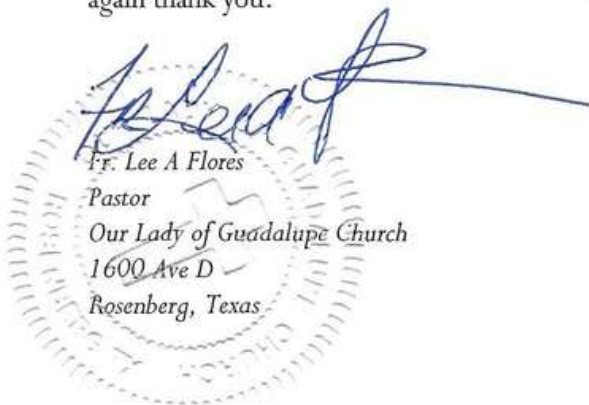 again thank you.
Fr. Lee A Flores
Pastor
Our Lady of Guadalupe Church
1600 Ave D
Rosenberg, Texas